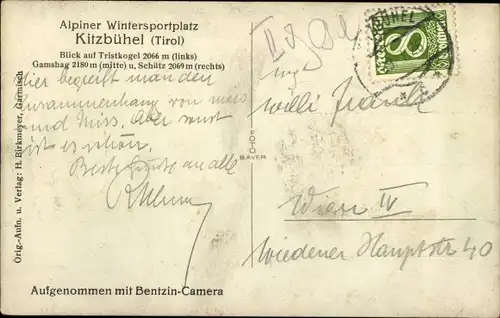 Alpiner Wintersportplatz
Kitzbühel (Tirol)
Blick auf Tristkogel 2066 m (links)
Gamshag 2180 m (mitte) u. Schütz 2069 m (rechts)
Hier begreift man den
Zusammenhang von
und Miss. Aber sonst
ist es schön.
Beste Grüsse an alle
Orig.-Aufn. u. Verlag: H. Birkmeyer, Garmisch
Aufgenommen mit Bentzin-Camera
FOTO
BAYER
BÜHEL
8
Willi
Wien IV
Wiedener Hauptstr 40